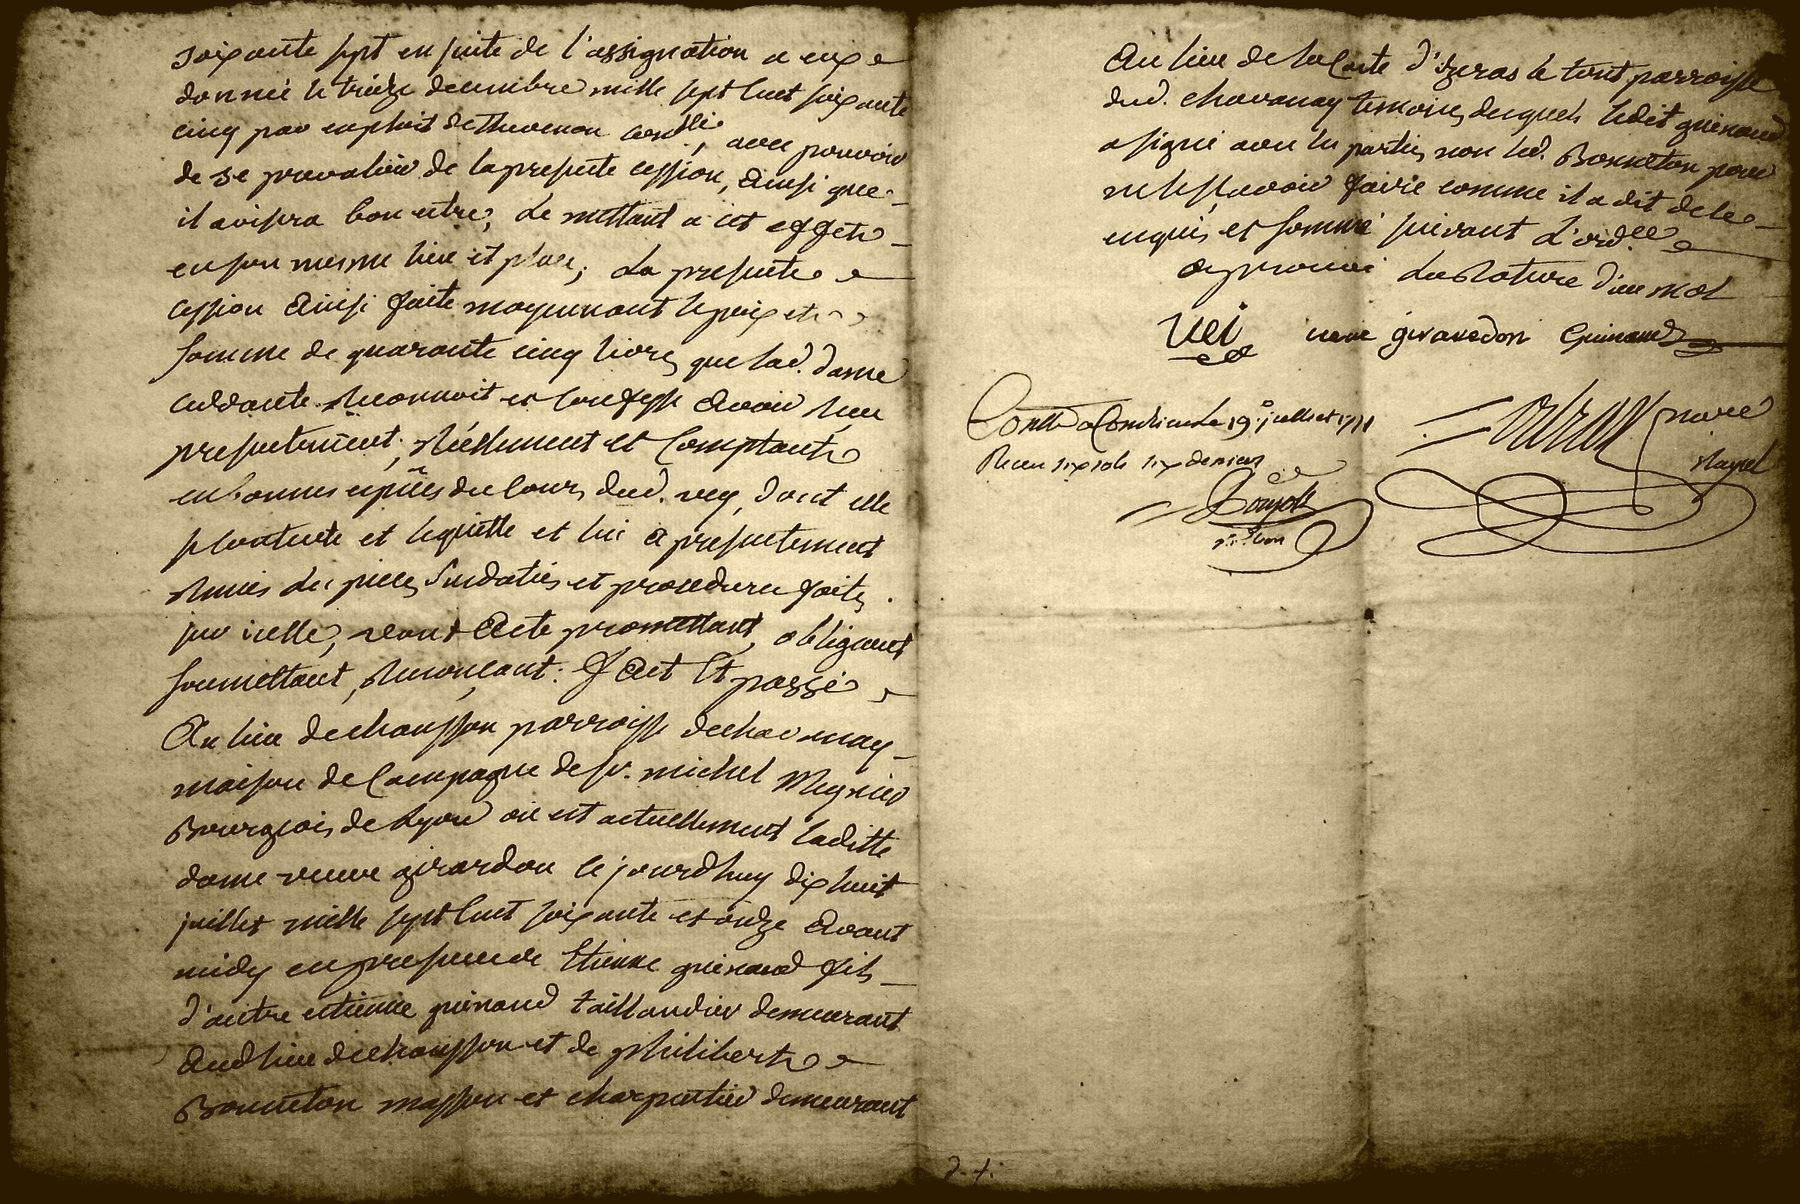 soixante sept en suite de l'assignation a eux
donnée le treize decembre mille sept cent soixante
cinq par exploit de Thevenon, avec pouvoir
de se prevaloir de la presente cession, ainsi que
il avisera bon estre, le mettant a cet effet
en son mesme lieu et place, La presente
cession ainsi faite moyennant le prix et
somme de quarante cinq livres que lad. dame
cedante reconnoit et confesse avoir reçu
presentement, réellement et comptant
en bonnes especes du cours dud. rey, dont elle
se contente et le quitte et lui a presentement
remis les pieces susdattés et procedures faites
par icelle, dont acte promettant, obligeant
soumettant, renonçant: fait et passé
au lieu de chausson parroisse de chavanay
maison de campagne de sr. michel Meynier
Bourgeois de Lyon où est actuellement laditte
dame veuve girardon le jourdhuy dix huit
juillet mille sept cent soixante et onze avant
midy en presence de Etienne guinand fils
d'autre estienne guinand taillandier demeurant
aud lieu de chausson et de philibert
Bonneton masson et charpentier demeurant
au lieu de la Coste d'izeras le tout parroisse
dud. chavanay temoins, desquels ledit guinand
a signé avec les parties non led. Bonneton pour
ne le sçavoir faire comme il a dit de ce
enquis et sommé suivant l'ord.ce
approuvé la rature d'un mot
rei veuve girardon Guinand
Contllé a Condrieu le 19e juillet 1771
Receu six sols six deniers
nore
royal